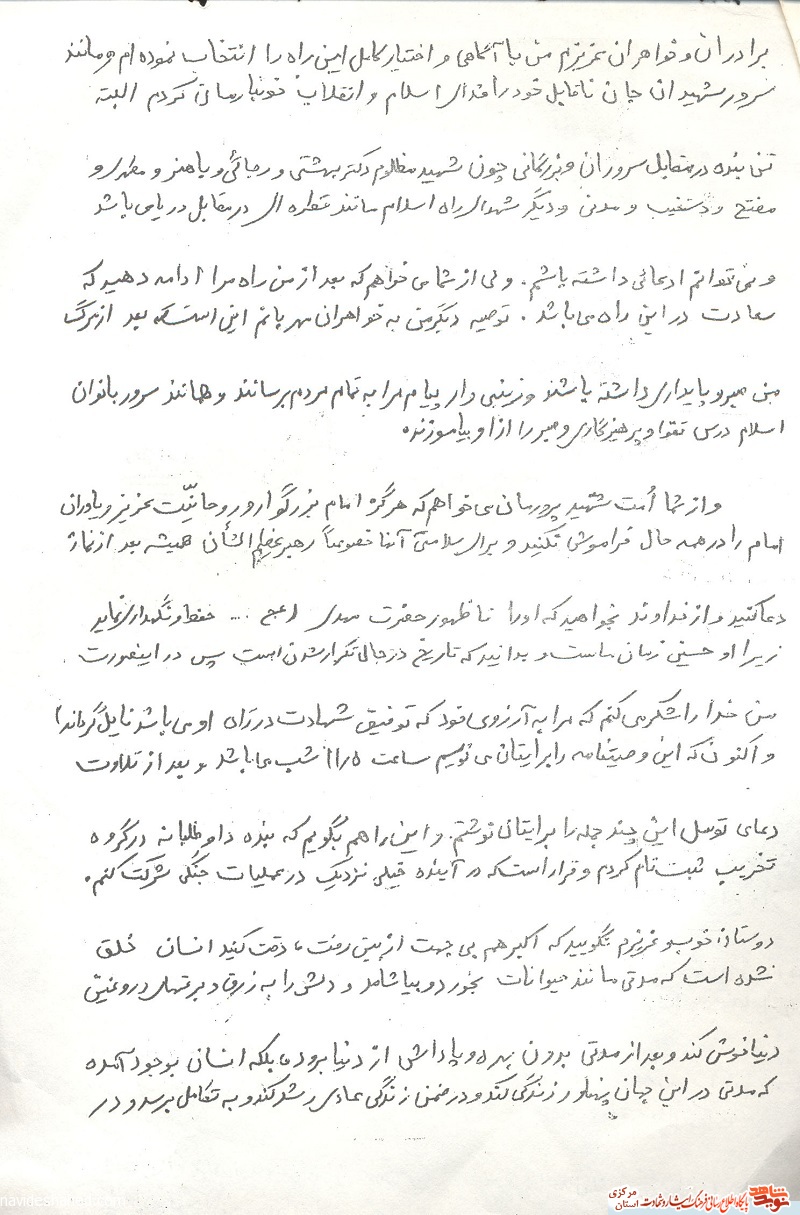 برادران و خواهران عزیزم من با آگاهی و اختیار کامل این راه را انتخاب نموده ام و مانند
سرور شهیدان جان ناقابل خود را فدای اسلام و انقلاب خونبارمان کردم البته
تن بنده در مقابل سروران و بزرگانی چون شهید مظلوم دکتر بهشتی و رجائی و باهنر و مطهری و
مفتح و دستغیب و مدنی و دیگر شهدای راه اسلام مانند قطره ای در مقابل دریا می باشد
و نمی توانم ادعائی داشته باشم. ولی از شما می خواهم که بعد از من راه مرا ادامه دهید که
سعادت در این راه می باشد. توصیه دیگر من به خواهران مهربانم این است که بعد از مرگ
من صبر و پایداری داشته باشند و زینبی وار پیام مرا به تمام مردم برسانند و همانند سرور بانوان
اسلام درس تقوا و پرهیزگاری و صبر را از او بیاموزند.
و از شما اُمت شهید پرورمان می خواهم که هرگز امام بزرگوار و روحانیّت عزیز و یاوران
امام را در همه حال فراموش نکنید و برای سلامتی آنها خصوصاً رهبر عظیم الشأن همیشه بعد از نماز
دعا کنید و از خداوند بخواهید که او را تا ظهور حضرت مهدی (عج ... حفظ و نگهداری نماید
زیرا او حسین زمان ماست و بدانید که تاریخ در حال تکرار شدن است پس در اینصورت
من خدا را شکر می کنم که مرا به آرزوی خود که توفیق شهادت در راه او می باشد نایل گرداند)
و اکنون که این وصیتنامه را برایتان می نویسم ساعت ۱۱/۵ شب می باشد و بعد از تلاوت
دعای توسل این چند جمله را برایتان نوشتم. و این را هم بگویم که بنده داوطلبانه در گروه
تخریب ثبت نام کردم و قرار است که در آینده خیلی نزدیک در عملیات جنگی شرکت کنم.
دوستان خوب و عزیزم نگویید که اکبر هم بی جهت از بین رفت، دقت کنید انسان خلق
نشده است که مدتی مانند حیوانات بخورد و بیاشامد و دلش را به زرق و برقهای دروغین
دنیا خوش کند و بعد از مدتی بدون بهره و پاداش از دنیا برود، بلکه انسان بوجود آمده
که مدتی در این جهان پهناور زندگی کند و در ضمن زندگی عادی رشد کند و به تکامل برسد و در
نوید شاهد
پایگاه اطلاع رسانی فرهنگ ایثار و شهادت استان مرکزی